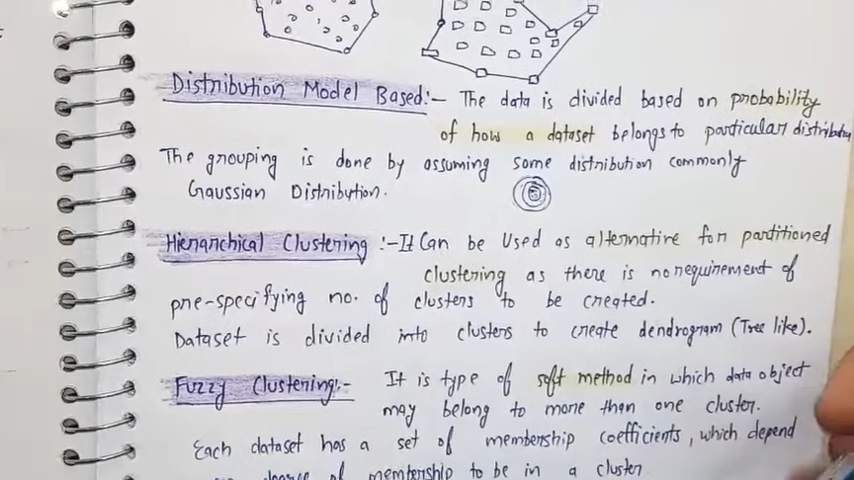 Distribution Model Based:- The data is divided based on probability
of how a dataset belongs to particular distribution
The grouping is done by assuming some distribution commonly
Gaussian Distribution.
Hierarchical Clustering :- It Can be Used as alternative for partitioned
clustering as there is no requirement of
pre-specifying no. of clusters to be created.
Dataset is divided into clusters to create dendrogram (Tree like).
Fuzzy Clustering:- It is type of soft method in which data object
may belong to more than one cluster.
Each dataset has a set of membership coefficients, which depend
degree of membership to be in a cluster